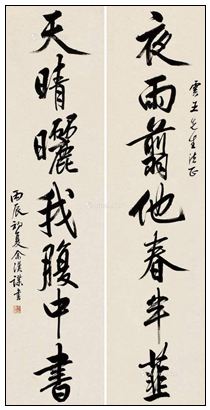 夜雨翦他春半韮
雲五先生法正
天晴曬我腹中書
丙辰初夏余漢謀書